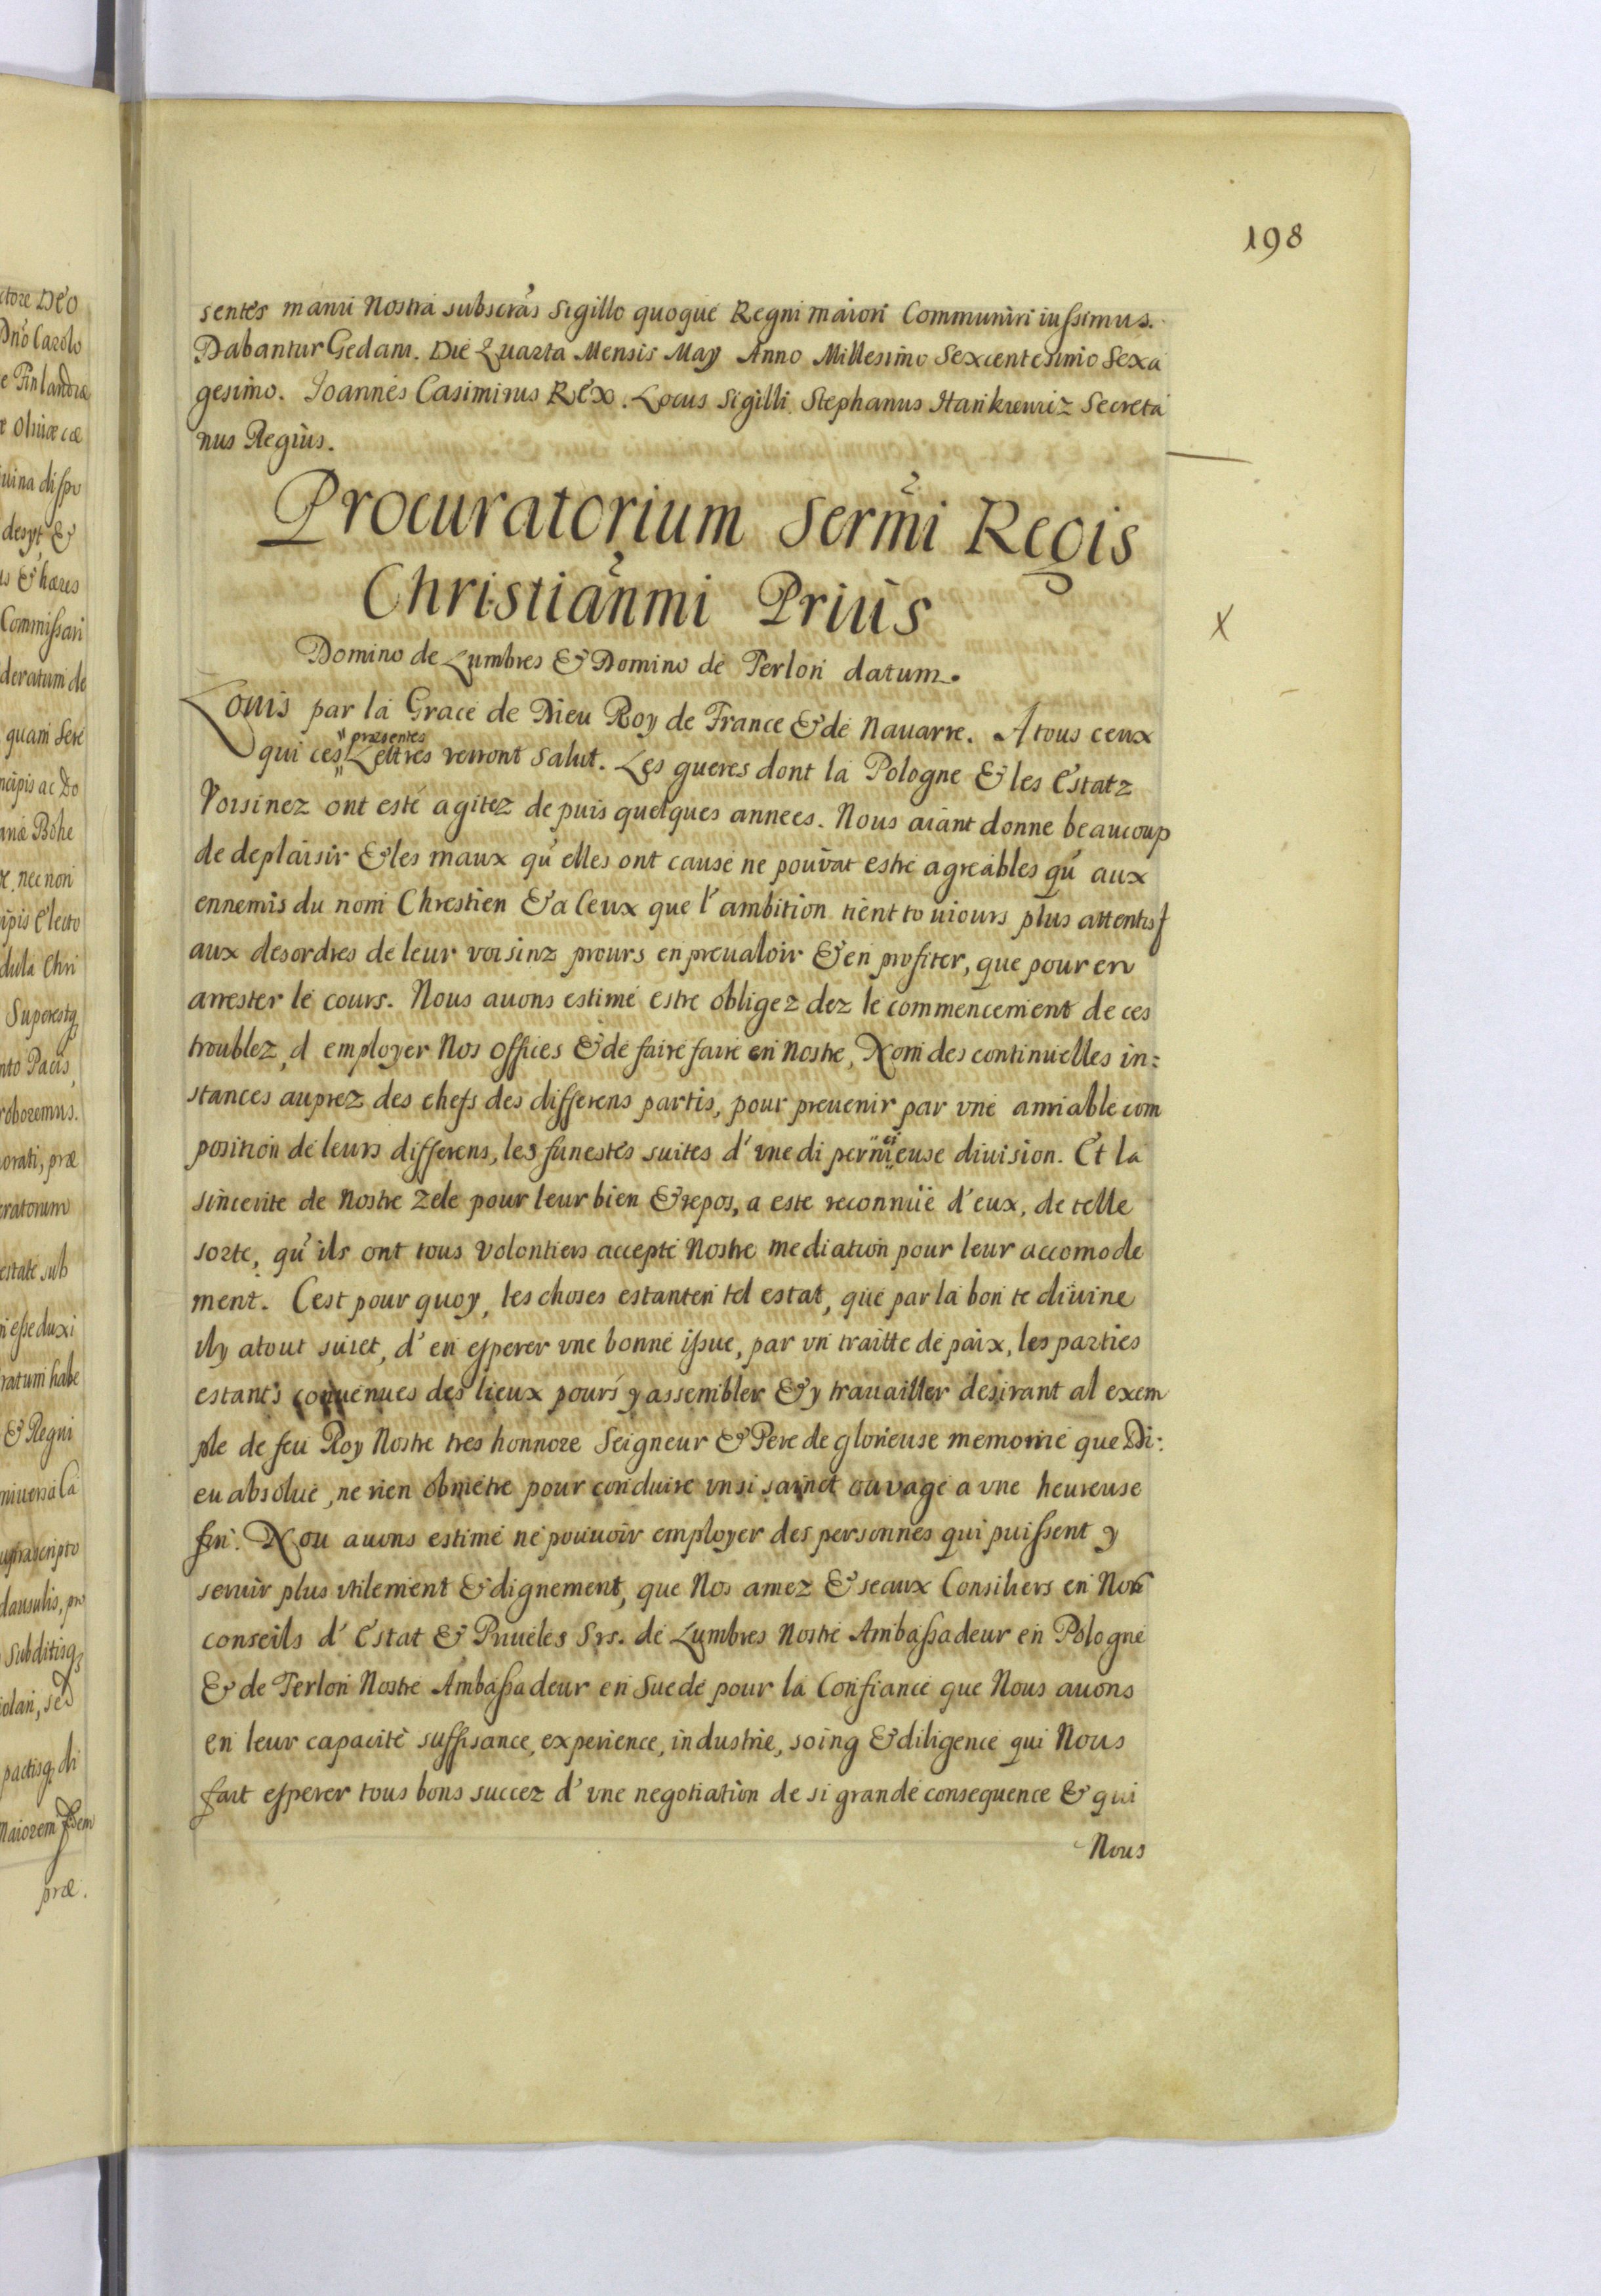 198
sentes manu Nostra subscrãs Sigillo quoque Regni maiori Communiri iussimus.
Dabantur Gedani. Die Quarta Mensis May Anno Millesimo Sexcentesimo Sexa
gesimo. Joannes Casimirus Rex. Locus Sigilli. Stephanus Hankiewiz Secreta
rius Regius.
Procuratorium Sermi Regis
Christianmi Prius
Domino de Lumbres & Domino de Terlon datum.
Louis par la Grace de Dieu Roy de France & de Nauarre. A tous ceux
qui ces presentes Lettres verront Salut. Les gueres dont la Pologne & les Estatz
Voisinez ont esté agitez de puis quelques annees. Nous aiant donne beaucoup
de deplaisir & les maux qu'elles ont causé ne pouvat estre agreables qu'aux
ennemis du nom Chrestien & a Ceux que l'ambition tient to uiours plus attentif
aux desordres de leur voisinz prours en preualoir & en profiter, que pour en
arrester le cours. Nous auons estimé estre obligez dez le commencement de ces
troublez, d employer Nos offices & de faire faire en Nostre, Nom des continuelles in=
stances auprez des chefs des differens partis, pour preuenir par vne amiable com
position de leurs differens, les funestes suites d'vne di pernicieuse diuision. Et la
sincerite de Nostre zele pour leur bien & repos, a este reconnuë d'eux, de telle
sorte, qu'ils ont tous volontiers accepté Nostre mediation pour leur accomode
ment. C'est pour quoy, les choses estanten tel estat, que par la bon te diuine
ily atout suiet, d'en esperer vne bonne issue, par vn traitte de paix, les parties
estants conuenues des lieux pours y assembler & y trauailler desirant al exem
ple de feu Roy Nostre tres honnore Seigneur & Pere de glorieuse memorie que Di:
eu absolue, ne rien obmetre pour conduire vn si sainct ouvage a vne heureuse
fin. Nou auons estimé ne pouuoir employer des personnes qui puissent y
seruir plus vtilement & dignement, que Nos amez & seaux Consiliers en Nos
conseils d'Estat & Priueles Srs. de Lumbres Nostre Ambassadeur en Pologne
& de Terlon Nostre Ambassadeur en Suede pour la Confiance que Nous auons
en leur capacité suffisance, experience, industrie, soing & diligence qui Nous
fait esperer tous bons succez d'vne negotiation de si grande consequence & qui
Nous